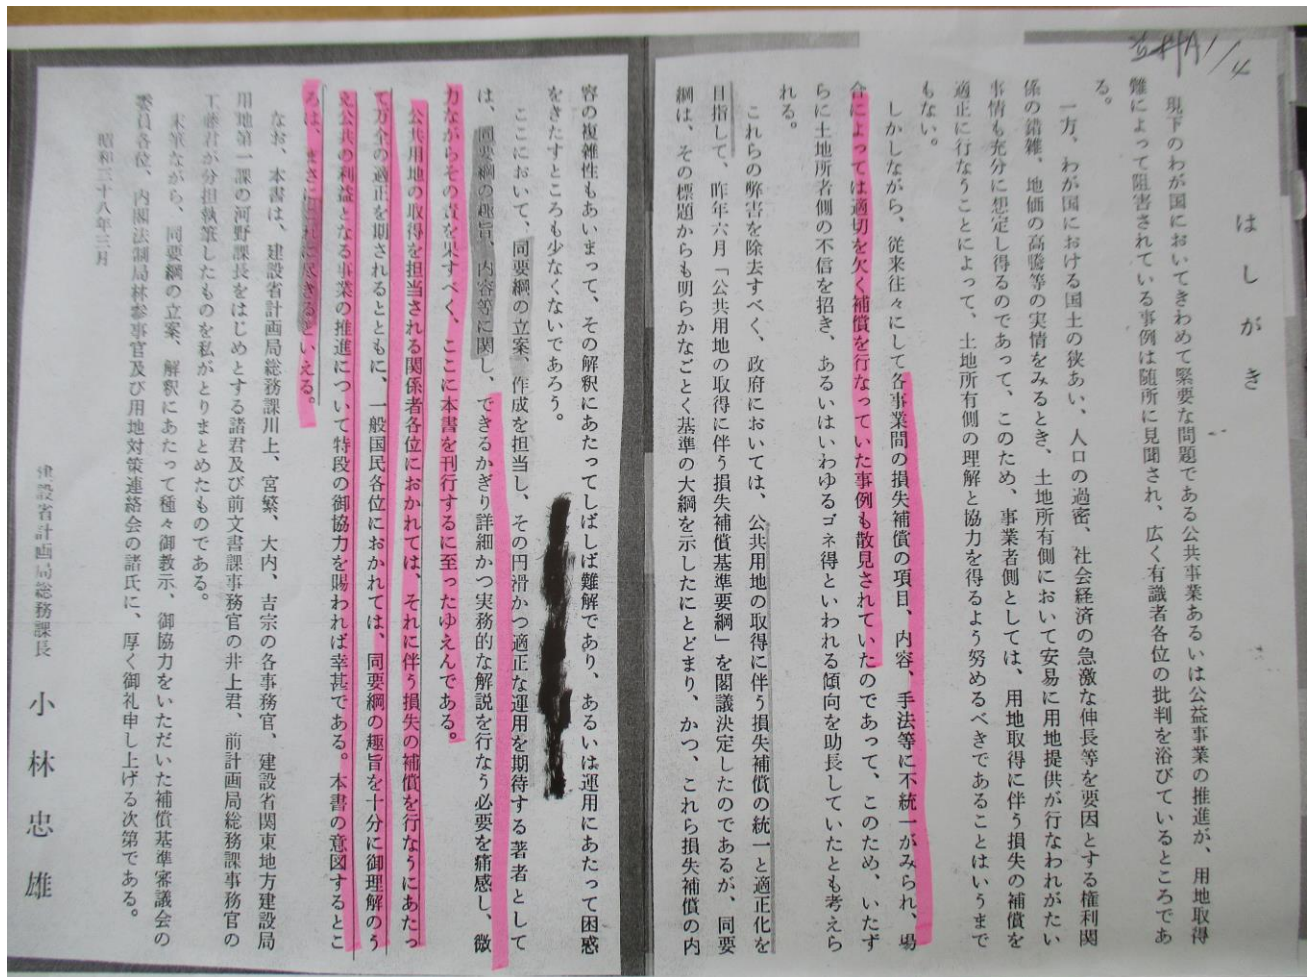 はしがき
現下のわが国においてきわめて緊要な問題である公共事業あるいは公益事業の推進が、用地取得
難によって阻害されている事例は随所に見聞され、広く有識者各位の批判を浴びているところであ
る。
一方、わが国における国土の狭あい、人口の過密、社会経済の急激な伸長等を要因とする権利関
係の錯雑、地価の高騰等の実情をみるとき、土地所有側において安易に用地提供が行なわれがたい
事情も充分に想定し得るのであって、このため、事業者側としては、用地取得に伴う損失の補償を
適正に行なうことによって、土地所有側の理解と協力を得るよう努めるべきであることはいうまで
もない。
しかしながら、従来往々にして各事業間の損失補償の項目、内容、手法等に不統一がみられ、場
合によっては適切を欠く補償を行なっていた事例も散見されていたのであって、このため、いたず
らに土地所者側の不信を招き、あるいはいわゆるゴネ得といわれる傾向を助長していたとも考えら
れる。
これらの弊害を除去すべく、政府においては、公共用地の取得に伴う損失補償の統一と適正化を
目指して、昨年六月「公共用地の取得に伴う損失補償基準要綱」を閣議決定したのであるが、同要
綱は、その標題からも明らかなごとく基準の大綱を示したにとどまり、かつ、これら損失補償の内
容の複雑性もあいまって、その解釈にあたってしばしば難解であり、あるいは運用にあたって困惑
をきたすところも少なくないであろう。
ここにおいて、同要綱の立案、作成を担当し、その円滑かつ適正な運用を期待する著者として
は、同要綱の趣旨、内容等に関し、できるかぎり詳細かつ実務的な解説を行なう必要を痛感し、微
力ながらその責を果すべく、ここに本書を刊行するに至ったゆえんである。
公共用地の取得を担当される関係者各位におかれては、それに伴う損失の補償を行なうにあたっ
て万全の適正を期されるとともに、一般国民各位におかれては、同要綱の趣旨を十分に御理解のう
え公共の利益となる事業の推進について特段の御協力を賜われば幸甚である。本書の意図するとこ
ろは、まさにこれに尽きるといえる。
なお、本書は、建設省計画局総務課川上、宮繁、大内、吉宗の各事務官、建設省関東地方建設局
用地第一課の河野課長をはじめとする諸君及び前文書課事務官の井上君、前計画局総務課事務官の
工藤君が分担執筆したものを私がとりまとめたものである。
末筆ながら、同要綱の立案、解釈にあたって種々御教示、御協力をいただいた補償基準審議会の
委員各位、内閣法制局林参事官及び用地対策連絡会の諸氏に、厚く御礼申し上げる次第である。
昭和三十八年三月
建設省計画局総務課長 小林忠雄